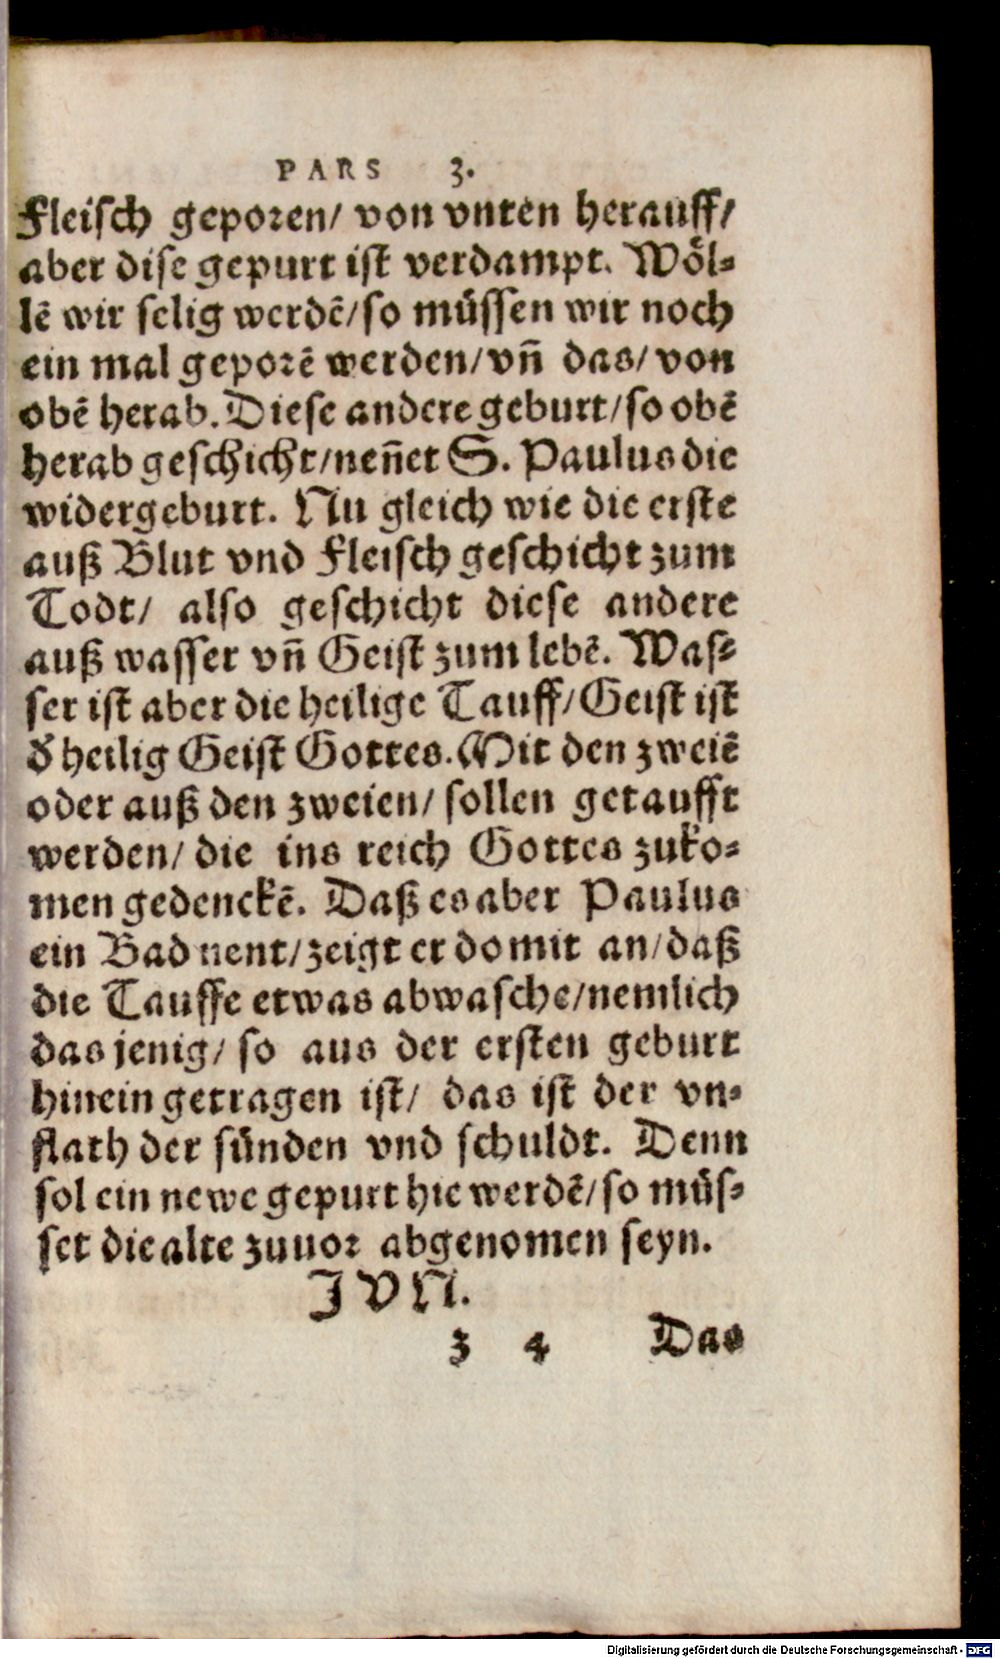 PARS 3.
Fleisch geporen/ von vnten herauff/
aber dise gepurt ist verdampt. Wöl-
lē wir selig werdē/so müssen wir noch
ein mal geporē werden/vn̄ das/von
obē herab. Diese andere geburt/so obē
herab geschicht/nen̄et S. Paulus die
widergeburt. Nu gleich wie die erste
auß Blut vnd Fleisch geschicht zum
Todt/ also geschicht diese andere
auß wasser vn̄ Geist zum lebē. Was-
ser ist aber die heilige Tauff/Geist ist
d̕ heilig Geist Gottes. Mit den zweiē
oder auß den zweien/ sollen getaufft
werden/ die ins reich Gottes zuko-
men gedenckē. Daß es aber Paulus
ein Bad nent/zeigt er domit an/daß
die Tauffe etwas abwasche/nemlich
das jenig/ so aus der ersten geburt
hinein getragen ist/ das ist der vn-
flath der sünden vnd schuldt. Denn
sol ein newe gepurt hie werdē/so müs-
set die alte zuuor abgenomen seyn.
JVN.
3 4 Das
Digitalisierung gefördert durch die Deutsche Forschungsgemeinschaft - DFG